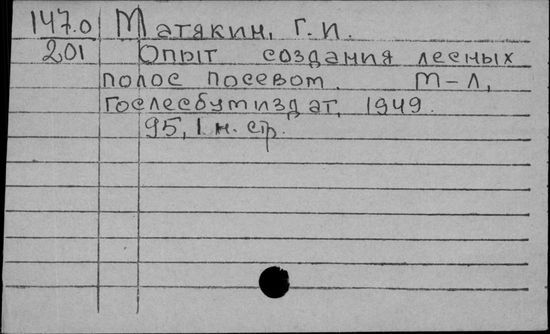 147.0 Матякин, Г.И.
201 Опыт создания лесных
полос посевом. М-Л,
Гослесбумиздат, 1949.
95, 1 н. стр.